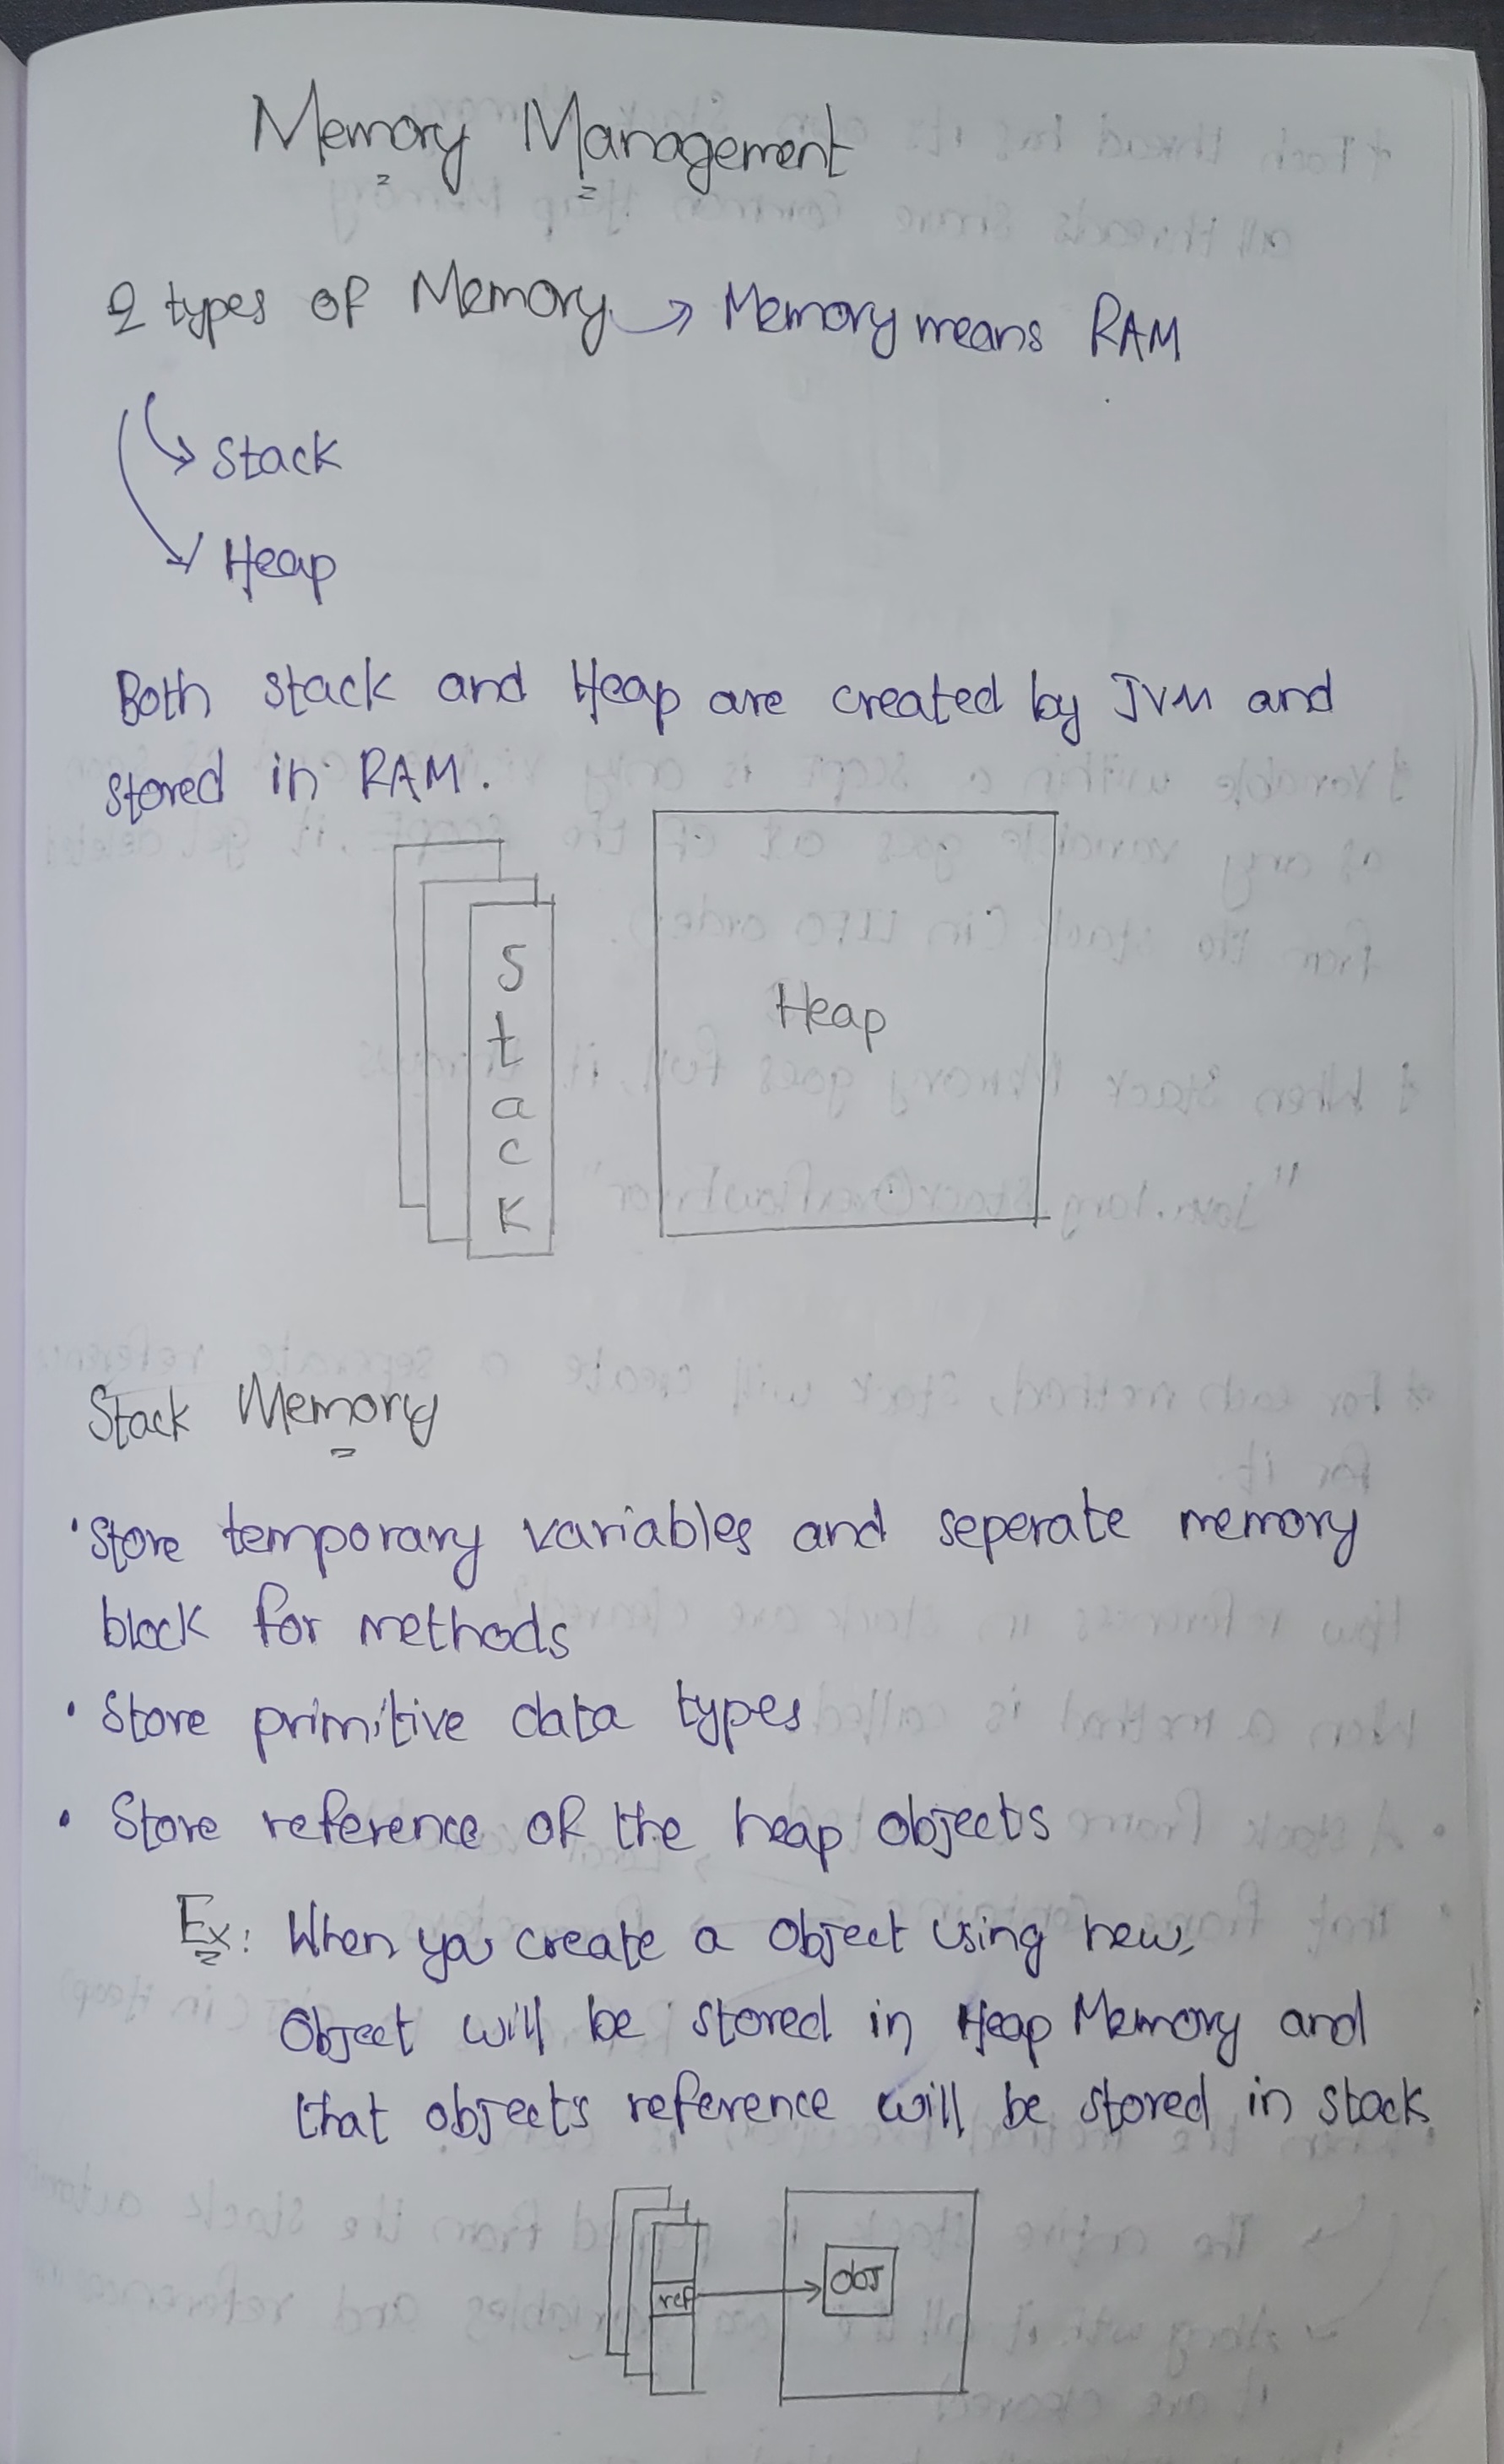 Memory Management
2 types of Memory → Memory means RAM
Stack
Heap
Both stack and Heap are created by JVM and
stored in RAM.
Stack
Heap
Stack Memory
• Store temporary variables and seperate memory
block for methods
• Store primitive data types
• Store reference of the heap objects
Ex: When you create a object using new,
Object will be stored in Heap Memory and
that objects reference will be stored in stack
ref
obj